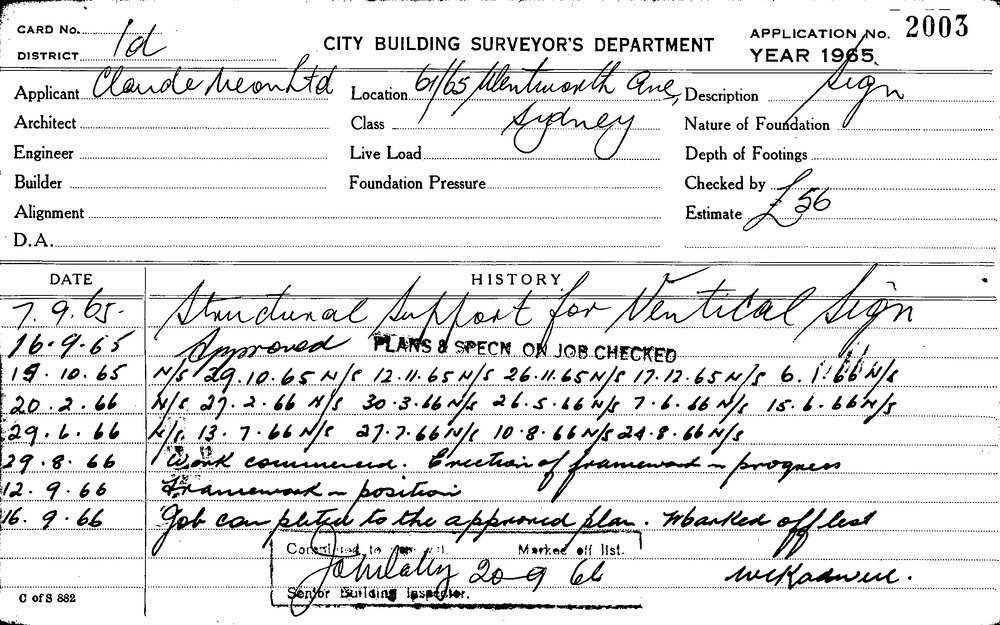 CARD No. 1d
DISTRICT
CITY BUILDING SURVEYOR'S DEPARTMENT
APPLICATION No. 2003
YEAR 1965.
Applicant Claude Neon Ltd
Location 61/65 Wentworth Ave, Sydney
Description Sign
Architect
Class
Nature of Foundation
Engineer
Live Load
Depth of Footings
Builder
Foundation Pressure
Checked by
Alignment
Estimate £56
D.A.
DATE HISTORY
7.9.65. Structural Support for Vertical Sign
16.9.65 Approved PLANS & SPECN ON JOB CHECKED
15.10.65 N/S 29.10.65 N/S 12.11.65 N/S 26.11.65 N/S 17.12.65 N/S 6.1.66 N/S
20.2.66 N/S 27.2.66 N/S 30.3.66 N/S 26.5.66 N/S 7.6.66 N/S 15.6.66 N/S
29.6.66 N/S 13.7.66 N/S 27.7.66 N/S 10.8.66 N/S 24.8.66 N/S
29.8.66 Work commenced. Erection of framework in progress
12.9.66 Framework in position
16.9.66 Job completed to the approved plan. Marked off list
Completed to approval. Marked off list.
20 9 66
Senior Building Inspector.
C of S 882